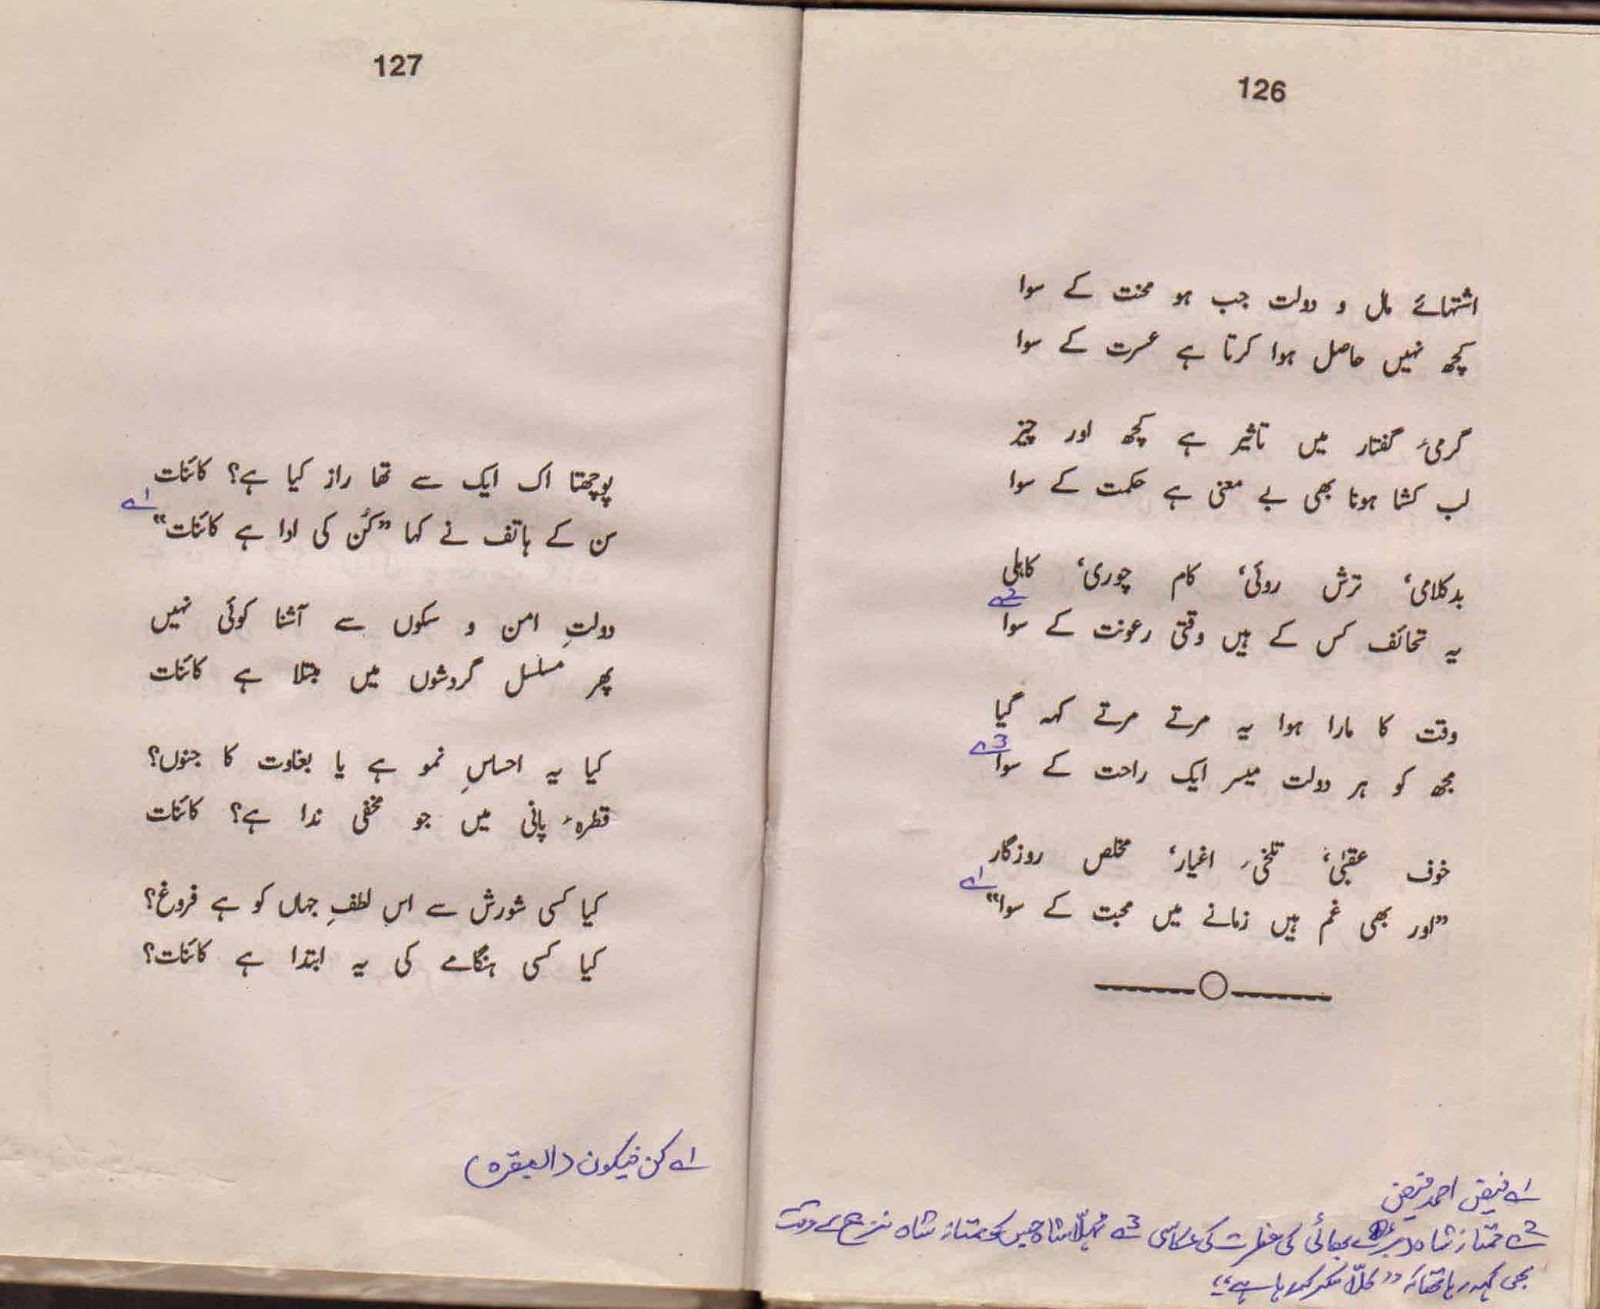 126
اشتہائے مال و دولت جب ہو محنت کے سوا
کچھ نہیں حاصل ہوا کرتا ہے عسرت کے سوا
گرمیٔ گفتار میں تاثیر ہے کچھ اور چیز
لب کشا ہونا بھی بے معنی ہے حکمت کے سوا
بدکلامی، ترش روئی، کام چوری، کاہلی
یہ تحائف کس کے ہیں وقتی رعونت کے سوا ۲
وقت کا مارا ہوا یہ مرتے مرتے کہہ گیا
مجھ کو ہر دولت میسر ایک راحت کے سوا ۳
خوف عقبیٰ، تلخیٔ اغیار، مخلص روزگار
”اور بھی غم ہیں زمانے میں محبت کے سوا“ ۱
۱ فیض احمد فیض
۲ ممتاز شاہ بھائی کی فطرت کی عکاسی ۳ شاہ حسین ممتاز شاہ نزع کے وقت
بھی کہہ رہا تھا کہ
127
پوچھتا اک ایک سے تھا راز کیا ہے؟ کائنات
سن کے ہاتف نے کہا ”کُن کی ادا ہے کائنات“ ۱
دولتِ امن و سکوں سے آشنا کوئی نہیں
پھر مسلسل گردشوں میں مبتلا ہے کائنات
کیا یہ احساسِ نمو ہے یا بغاوت کا جنوں؟
قطرہٴ پانی میں جو مخفی ندا ہے؟ کائنات
کیا کسی شورش سے اس لطفِ جہاں کو ہے فروغ؟
کیا کسی ہنگامے کی یہ ابتدا ہے کائنات؟
۱ کن فیکون (البقرہ)